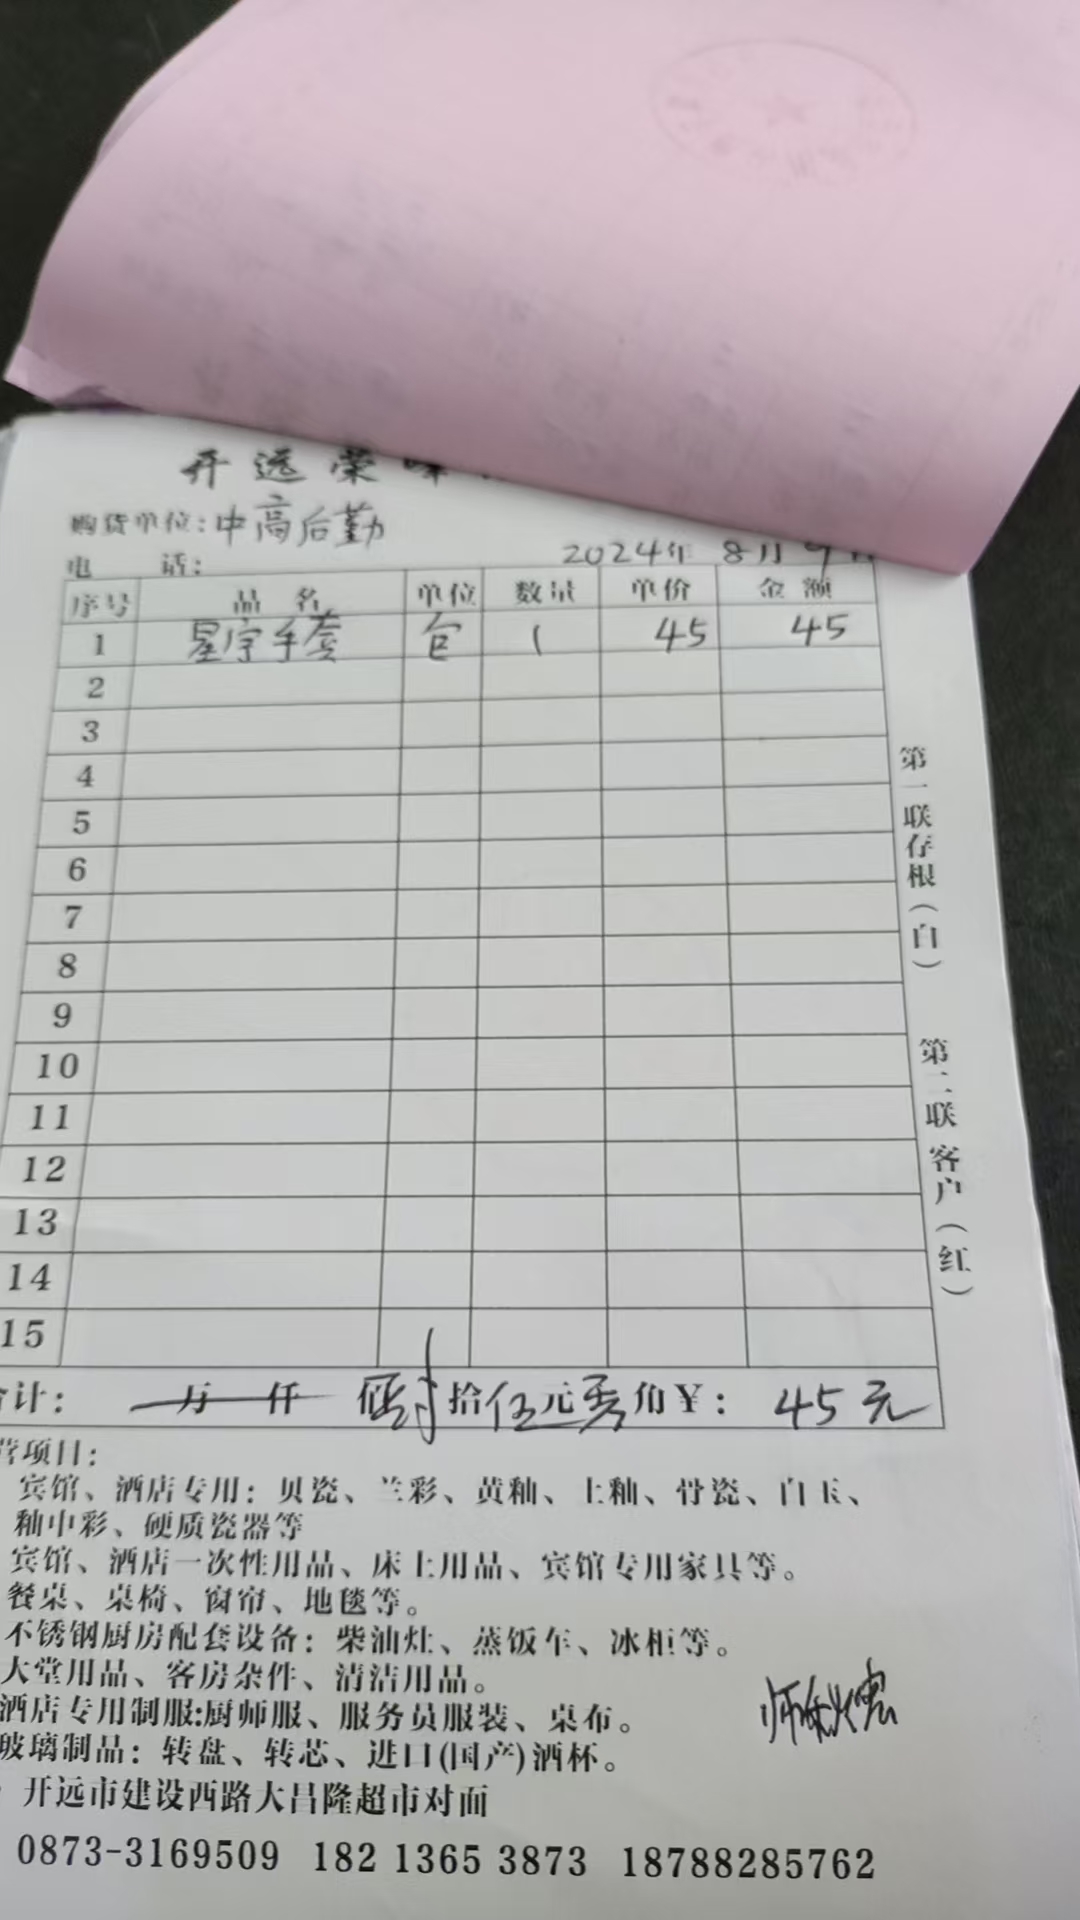 开远荣峰
购货单位：中高后勤
电 话： 2024年 8月9日
序号 品 名 单位 数量 单价 金 额
1 星宇手套 包 1 45 45
2
3
4
5
6
7
8
9
10
11
12
13
14
15
第一联存根（白） 第二联客户（红）
合计： 万 仟 佰 拾伍元 角¥： 45元
营项目：
宾馆、酒店专用：贝瓷、兰彩、黄釉、土釉、骨瓷、白玉、
釉中彩、硬质瓷器等
宾馆、酒店一次性用品、床上用品、宾馆专用家具等。
餐桌、桌椅、窗帘、地毯等。
不锈钢厨房配套设备：柴油灶、蒸饭车、冰柜等。
大堂用品、客房杂件、清洁用品。
酒店专用制服:厨师服、服务员服装、桌布。
玻璃制品：转盘、转芯、进口(国产)酒杯。
开远市建设西路大昌隆超市对面
0873-3169509 182 1365 3873 18788285762